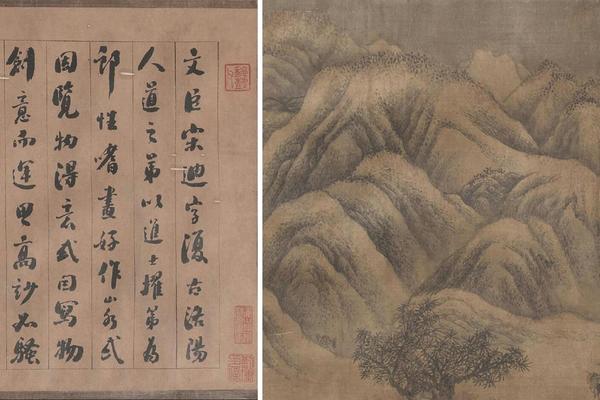 文臣宋迪字復古洛陽
人道之弟以進士擢第為
郎性嗜畫好作山水或
因覽物得意或因寫物
創意而運思高妙如騷